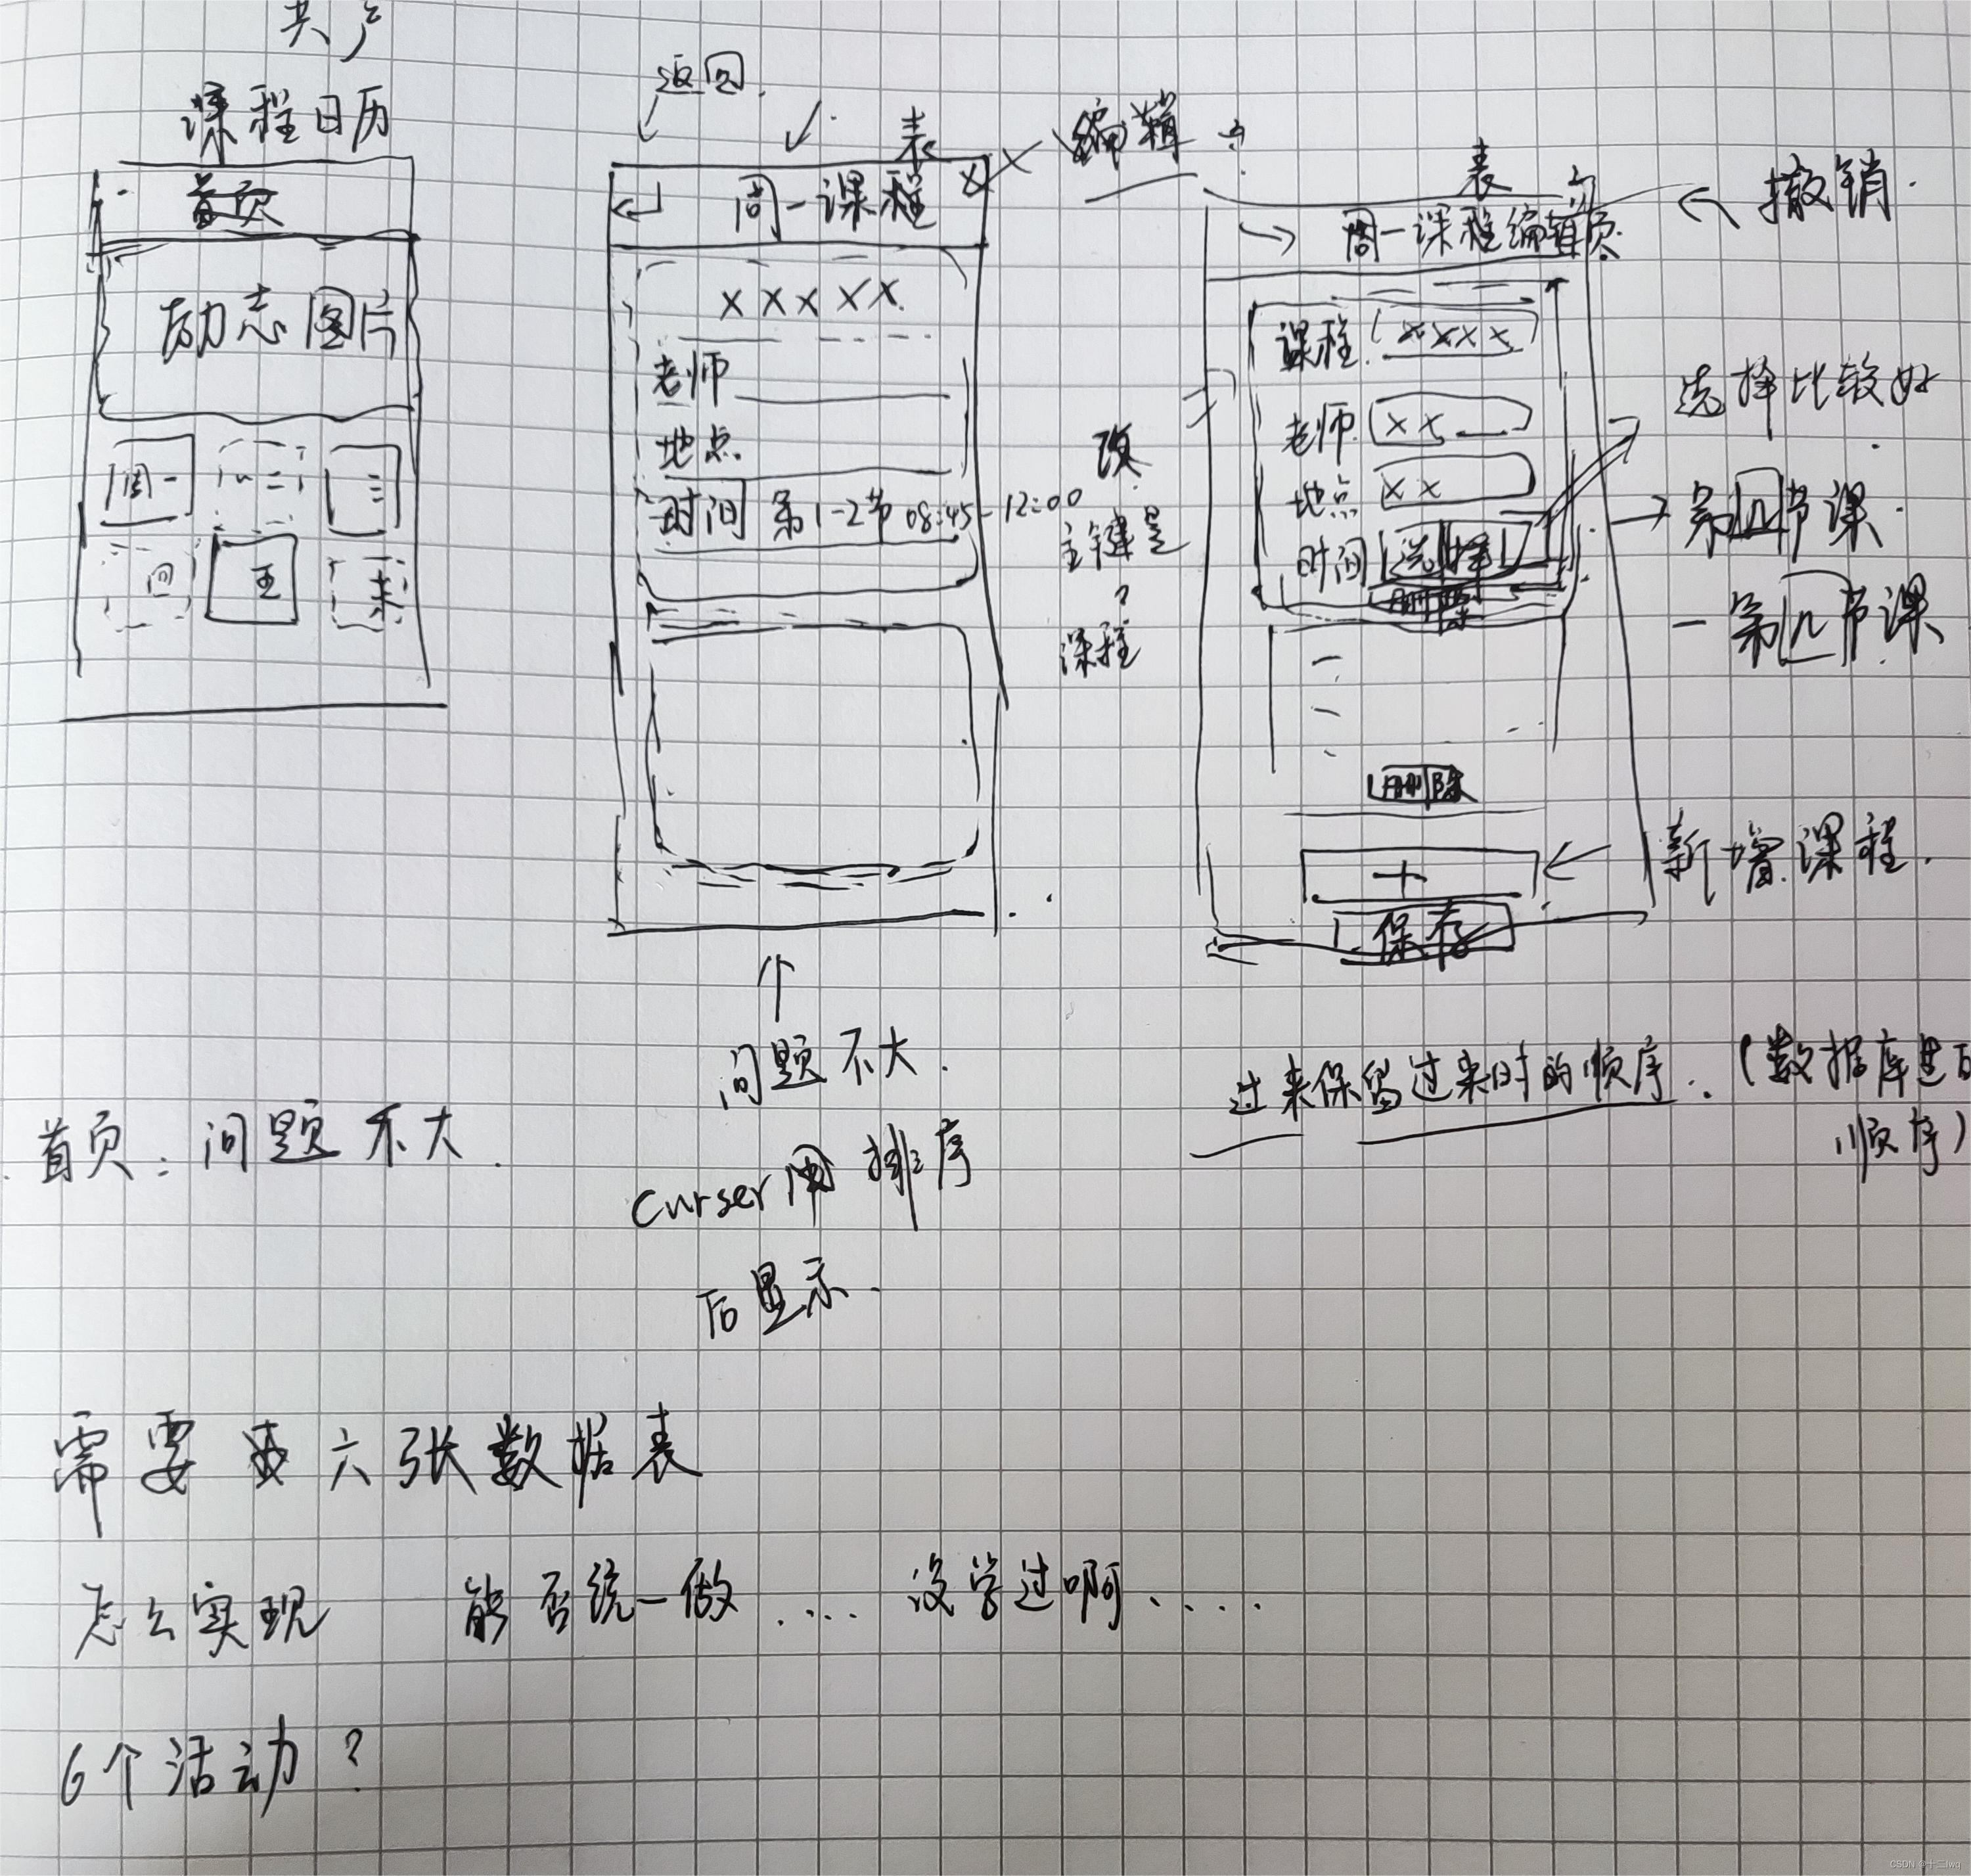 共产
课程日历
首页
励志图片
周一
二
三
四
五
未
返回
表
周一课程
编辑
XXXXX
老师
地点
时间 第1-2节 08:45-12:00
改
主键是
?
课程
表
周一课程编辑页
撤销
课程 xxxx
老师 xx
地点 xx
时间 选择
删除
选择比较好
第几节课
-第几节课
删除
+
新增课程
保存
首页:问题不大
问题不大
Curser用排序
后显示
过来保留过来时的顺序.(数据库进的
顺序)
需要 六张数据表
怎么实现 能否统一做.... 没学过啊.....
6个活动?
CSDN @十二lwq